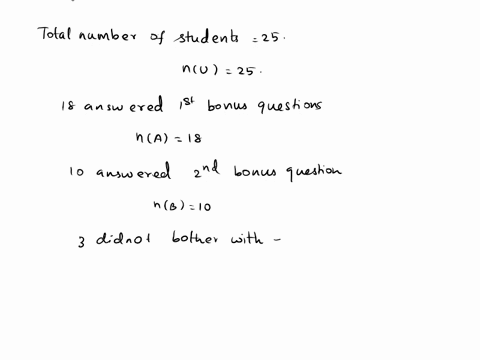 Total number of students = 25.
n(U) = 25.
18 answered 1st bonus questions
n(A) = 18
10 answered 2nd bonus question
n(B) = 10
3 didnot bother with -